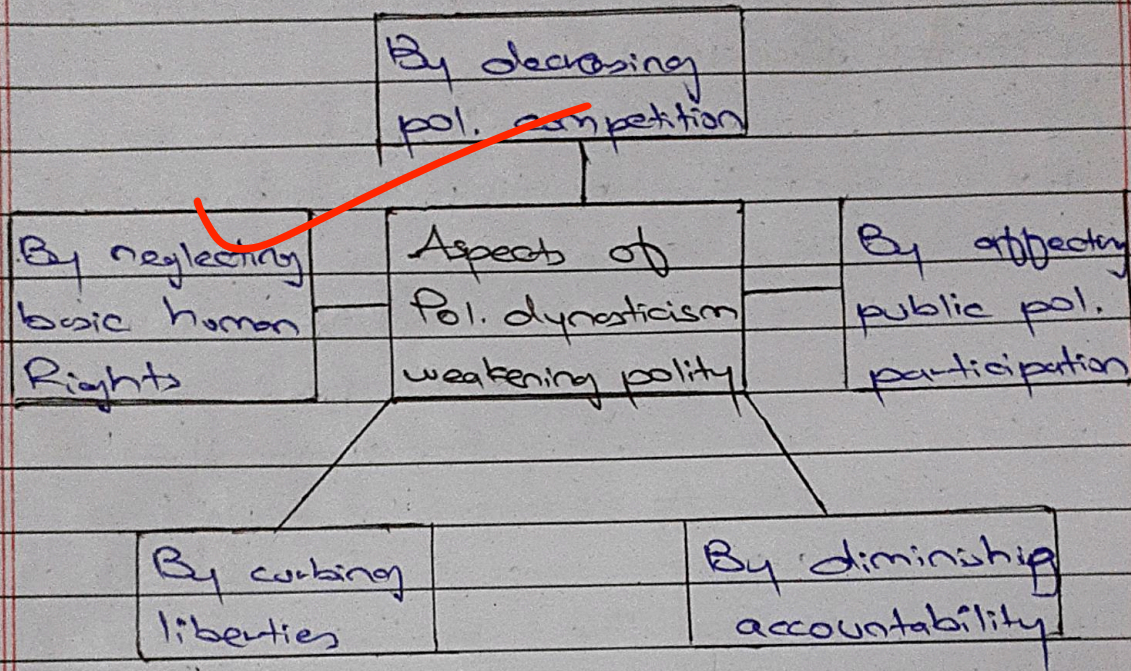 By decreasing
pol. competition
By neglecting
basic human
Rights
Aspects of
Pol. dynasticism
weakening polity
By affecting
public pol.
participation
By curbing
liberties
By diminishig
accountability